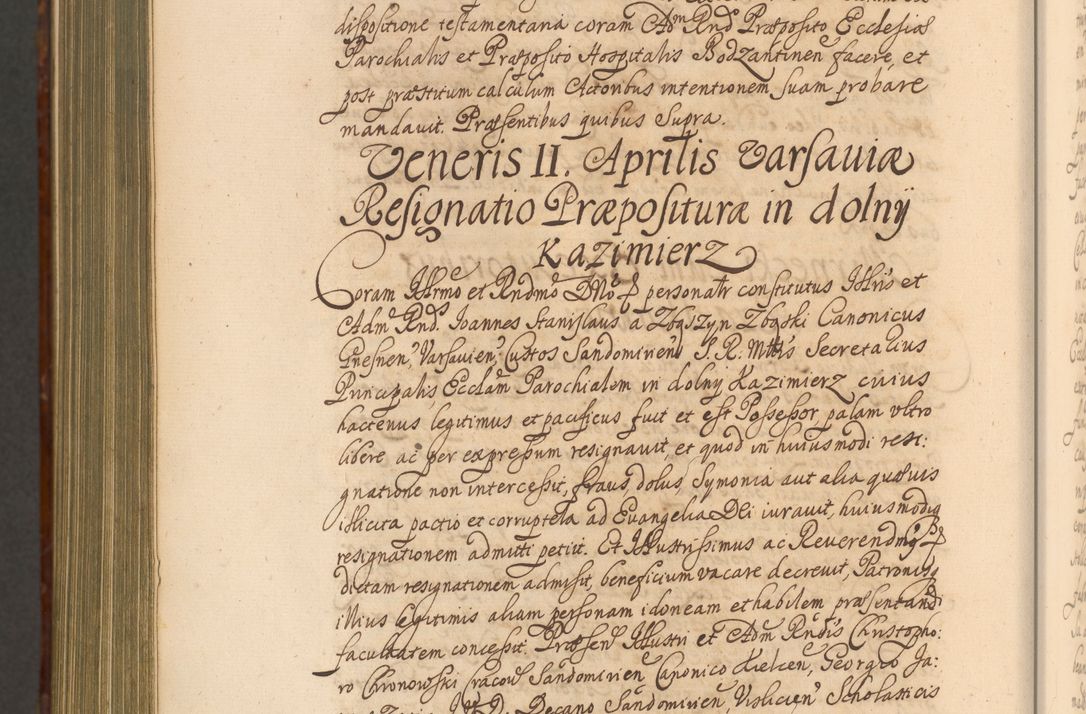 dispositione testamentaria coram Adm Rndo Præposito Ecclesiæ
Parochialis et Præposito Hospitalis Bodzantinen facere, et
post præstitum calculum Actoribus intentionem suam probare
mandavit. Præsentibus quibus Supra.
Veneris II. Aprilis Varsaviæ
Resignatio Præpositura in dolny
Kazimierz
Coram Illrmo et Rndmo Dno personalr constitutus Illris et
Adm Rnds Joannes Stanislaus a Zbąszyn Zbąski Canonicus
Gnesnen, Varsavien, Custos Sandomirien S. R. Mttis Secretarius
Principalis, Ecclam Parochialem in dolny Kazimierz cuius
hactenus legitimus et pacificus fuit et est Possessor palam vltro
libere ac per expressum resignavit, et quod in huiusmodi resi:
gnatione non intercessit, fraus, dolus, Symonia aut alia quævis
illicita pactio et corruptela ad Evangelia Dei iuravit, huiusmodiq
resignationem admitti petiit. Et Illustrissimus ac Reverendmq
dictam resignationem admisit, beneficium vacare decrevit, Patronisq
illius legitimis aliam personam idoneam et habilem præsentandi
facultatem concessit. Præsen Illustri et Adm Rndis Christopho:
ro Chronowski Cracov Sandomirien Canonico Kielcen, Georgio Ja:
D. Decano Sandomirien, Vislicien Scholasticis